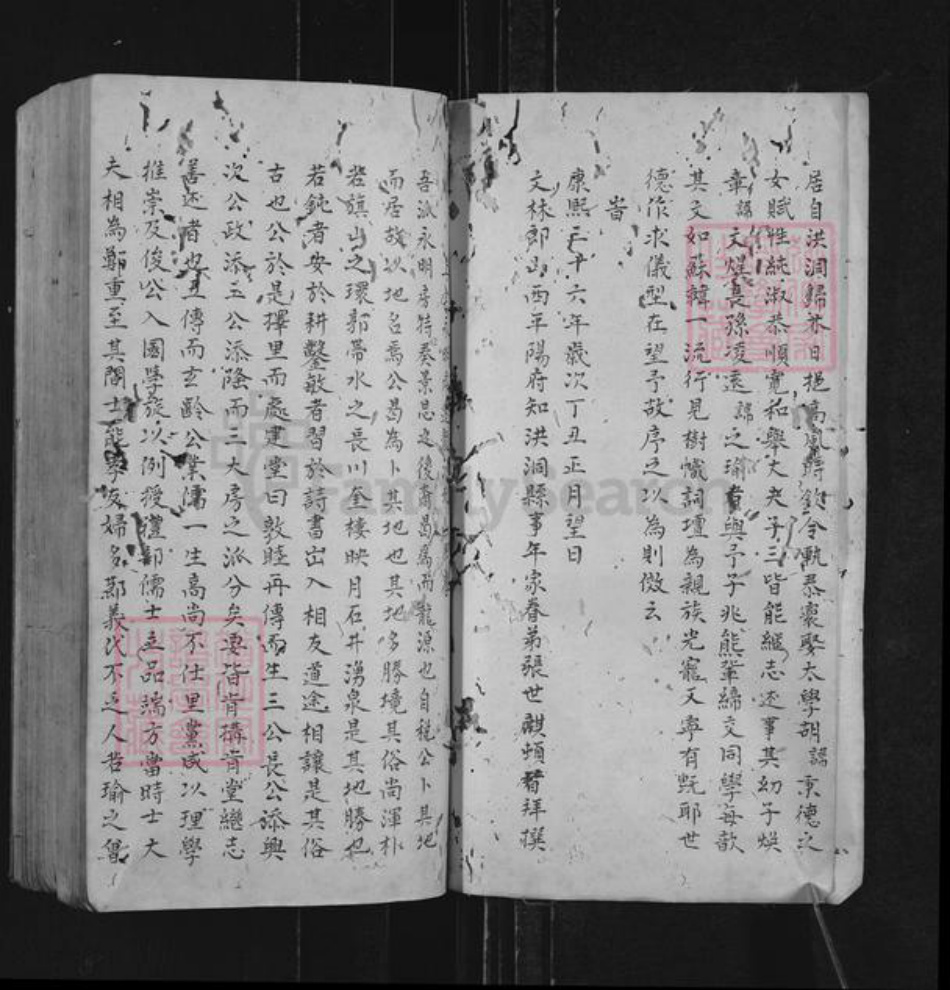 居自洪洞歸恭日挹高風時欽令執恭褱娶太學胡諱秉德之
女賦性純淑恭順寬和舉丈夫子三皆能繼志述事其幼子煥
章諱文燿長孫凌遠諱之瑜者與予子兆熊輩締交同學每歆
其文如蘇韓一流行見樹幟詞壇為親族光寵又寧有旣耶世
德作求儀型在望予故序之以為則傚云
旹
康熙三十六年歲次丁丑正月望日
文林郎山西平陽府知洪洞縣事年家眷弟張世麒頓首拜撰
吾派永明房特奏景思之後裔曷為而龍源也自稅公卜其地
而居故以地名焉公曷為卜其地也其地多勝境其俗尚渾朴
若旗山之環郭帶水之長川奎樓映月石井湧泉是其地勝也
若鈍者安於耕鑿敏者習於詩書出入相友道途相讓是其俗
古也公於是擇里而處建堂曰敦睦再傳而生三公長公添興
次公政添三公添隆而三大房之派分矣要皆肯搆肯堂繼志
善述者也五傳而玄齡公業儒一生高尚不仕里黨咸以理學
推崇及俊公入國學旋以例授禮部儒士立品端方當時士大
夫相為鄭重至其閣士能學友婦多鄰義代不乏人若瑜之曾
FamilySearch